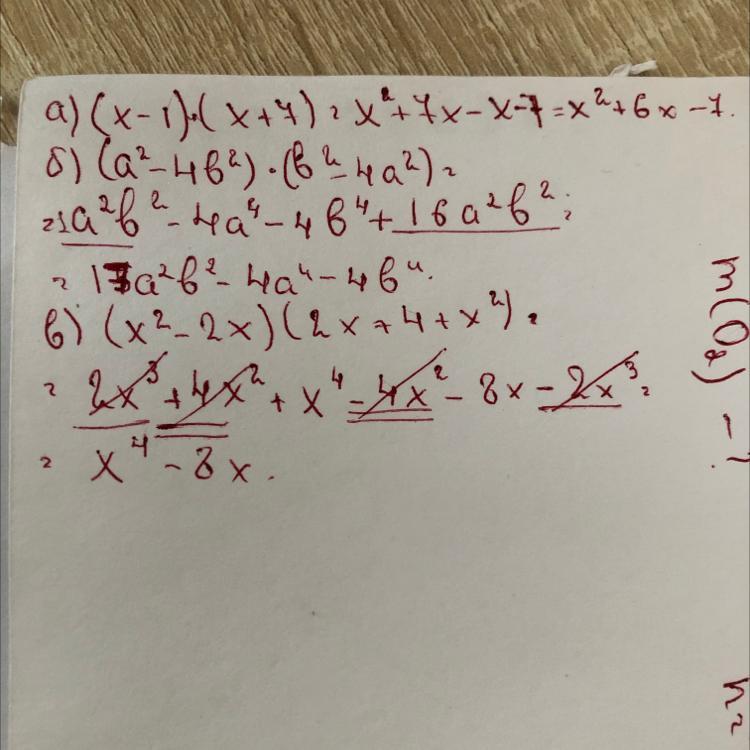 а) (x-1)·(x+7) = x²+7x-x-7 = x²+6x-7.
б) (a²-4b²)·(b²-4a²) =
=1a²b²-4a⁴-4b⁴+16a²b² =
= 17a²b²-4a⁴-4b⁴.
в) (x²-2x)(2x+4+x²) =
= 2x³+4x²+x⁴-4x²-8x-2x³ =
= x⁴-8x.